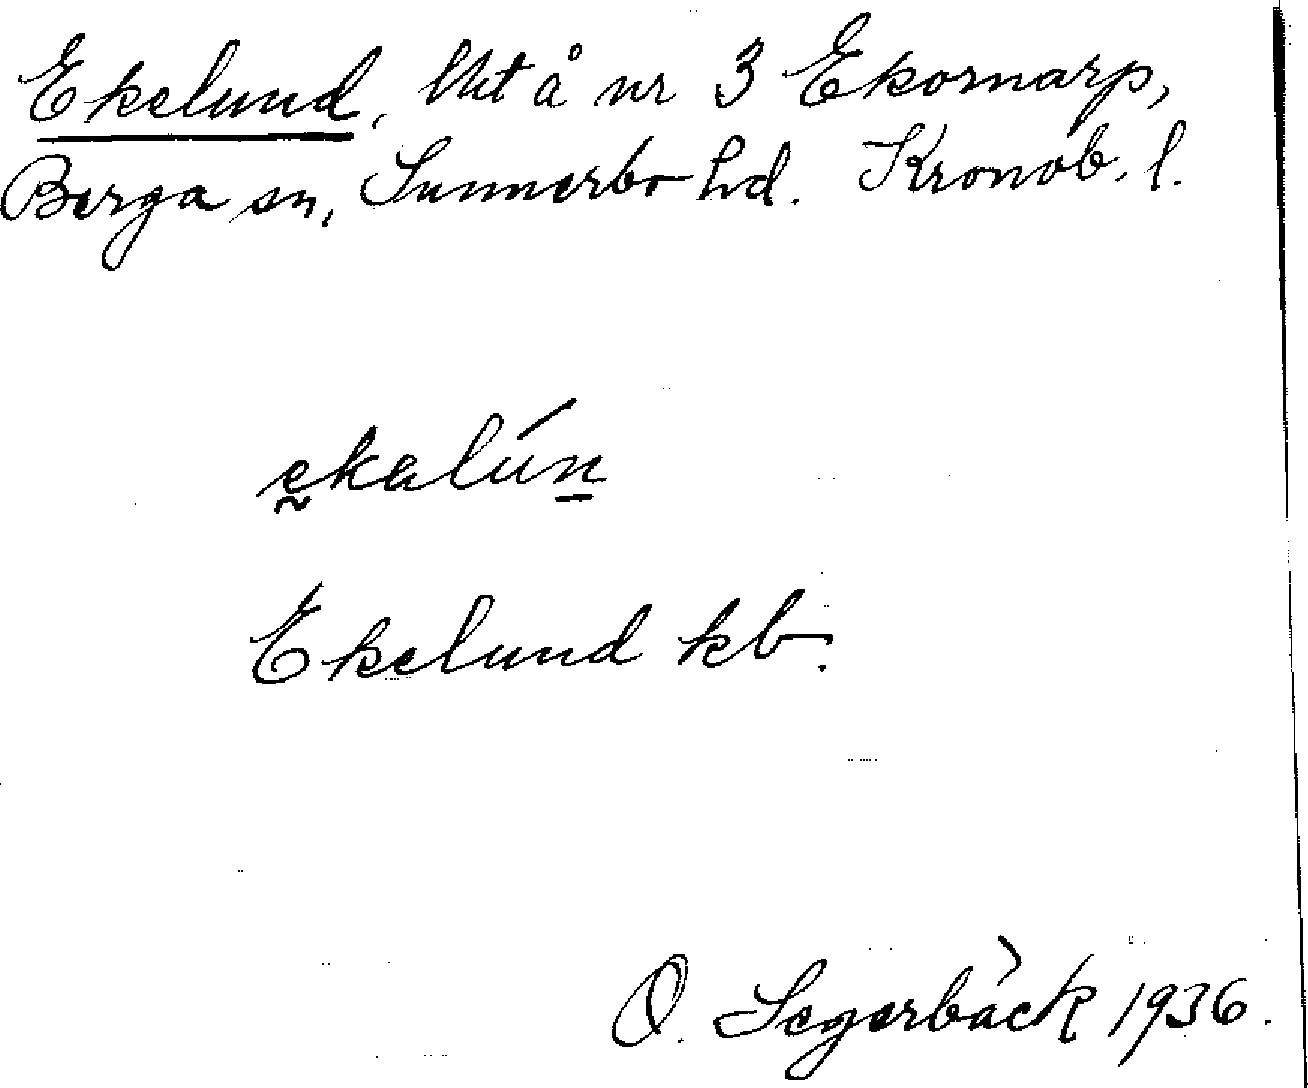 Ekelund, lht å nr 3 Ekornarp,
Berga sn, Sunnerbo hd. Kronob. l.
ekalún
Ekelund kb.
O. Segerbäck 1936.